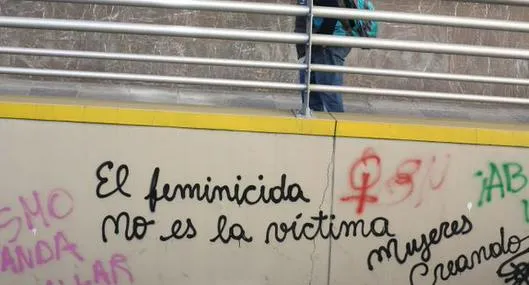 El feminicida
no es la víctima
Mujeres
Creando
SMO
ANDA
LLAR
¡AB